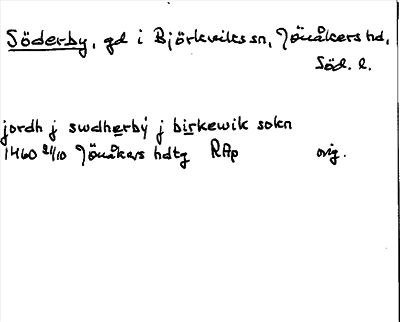 Söderby, gd i Björkviks sn, Jönåkers hd,
Söd. l.
jordh j swdherbý j birkewik sokn
1460 21/10 Jönåkers hdtg RAp orig.